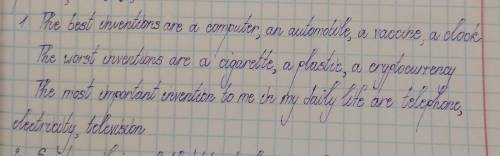 1 The best inventions are a computer, an automobile, a vaccine, a clook.
The worst inventions are a cigarette, a plastic, a cryptocurrency
The most important invention to me in my daily life are telephone,
electricity, television